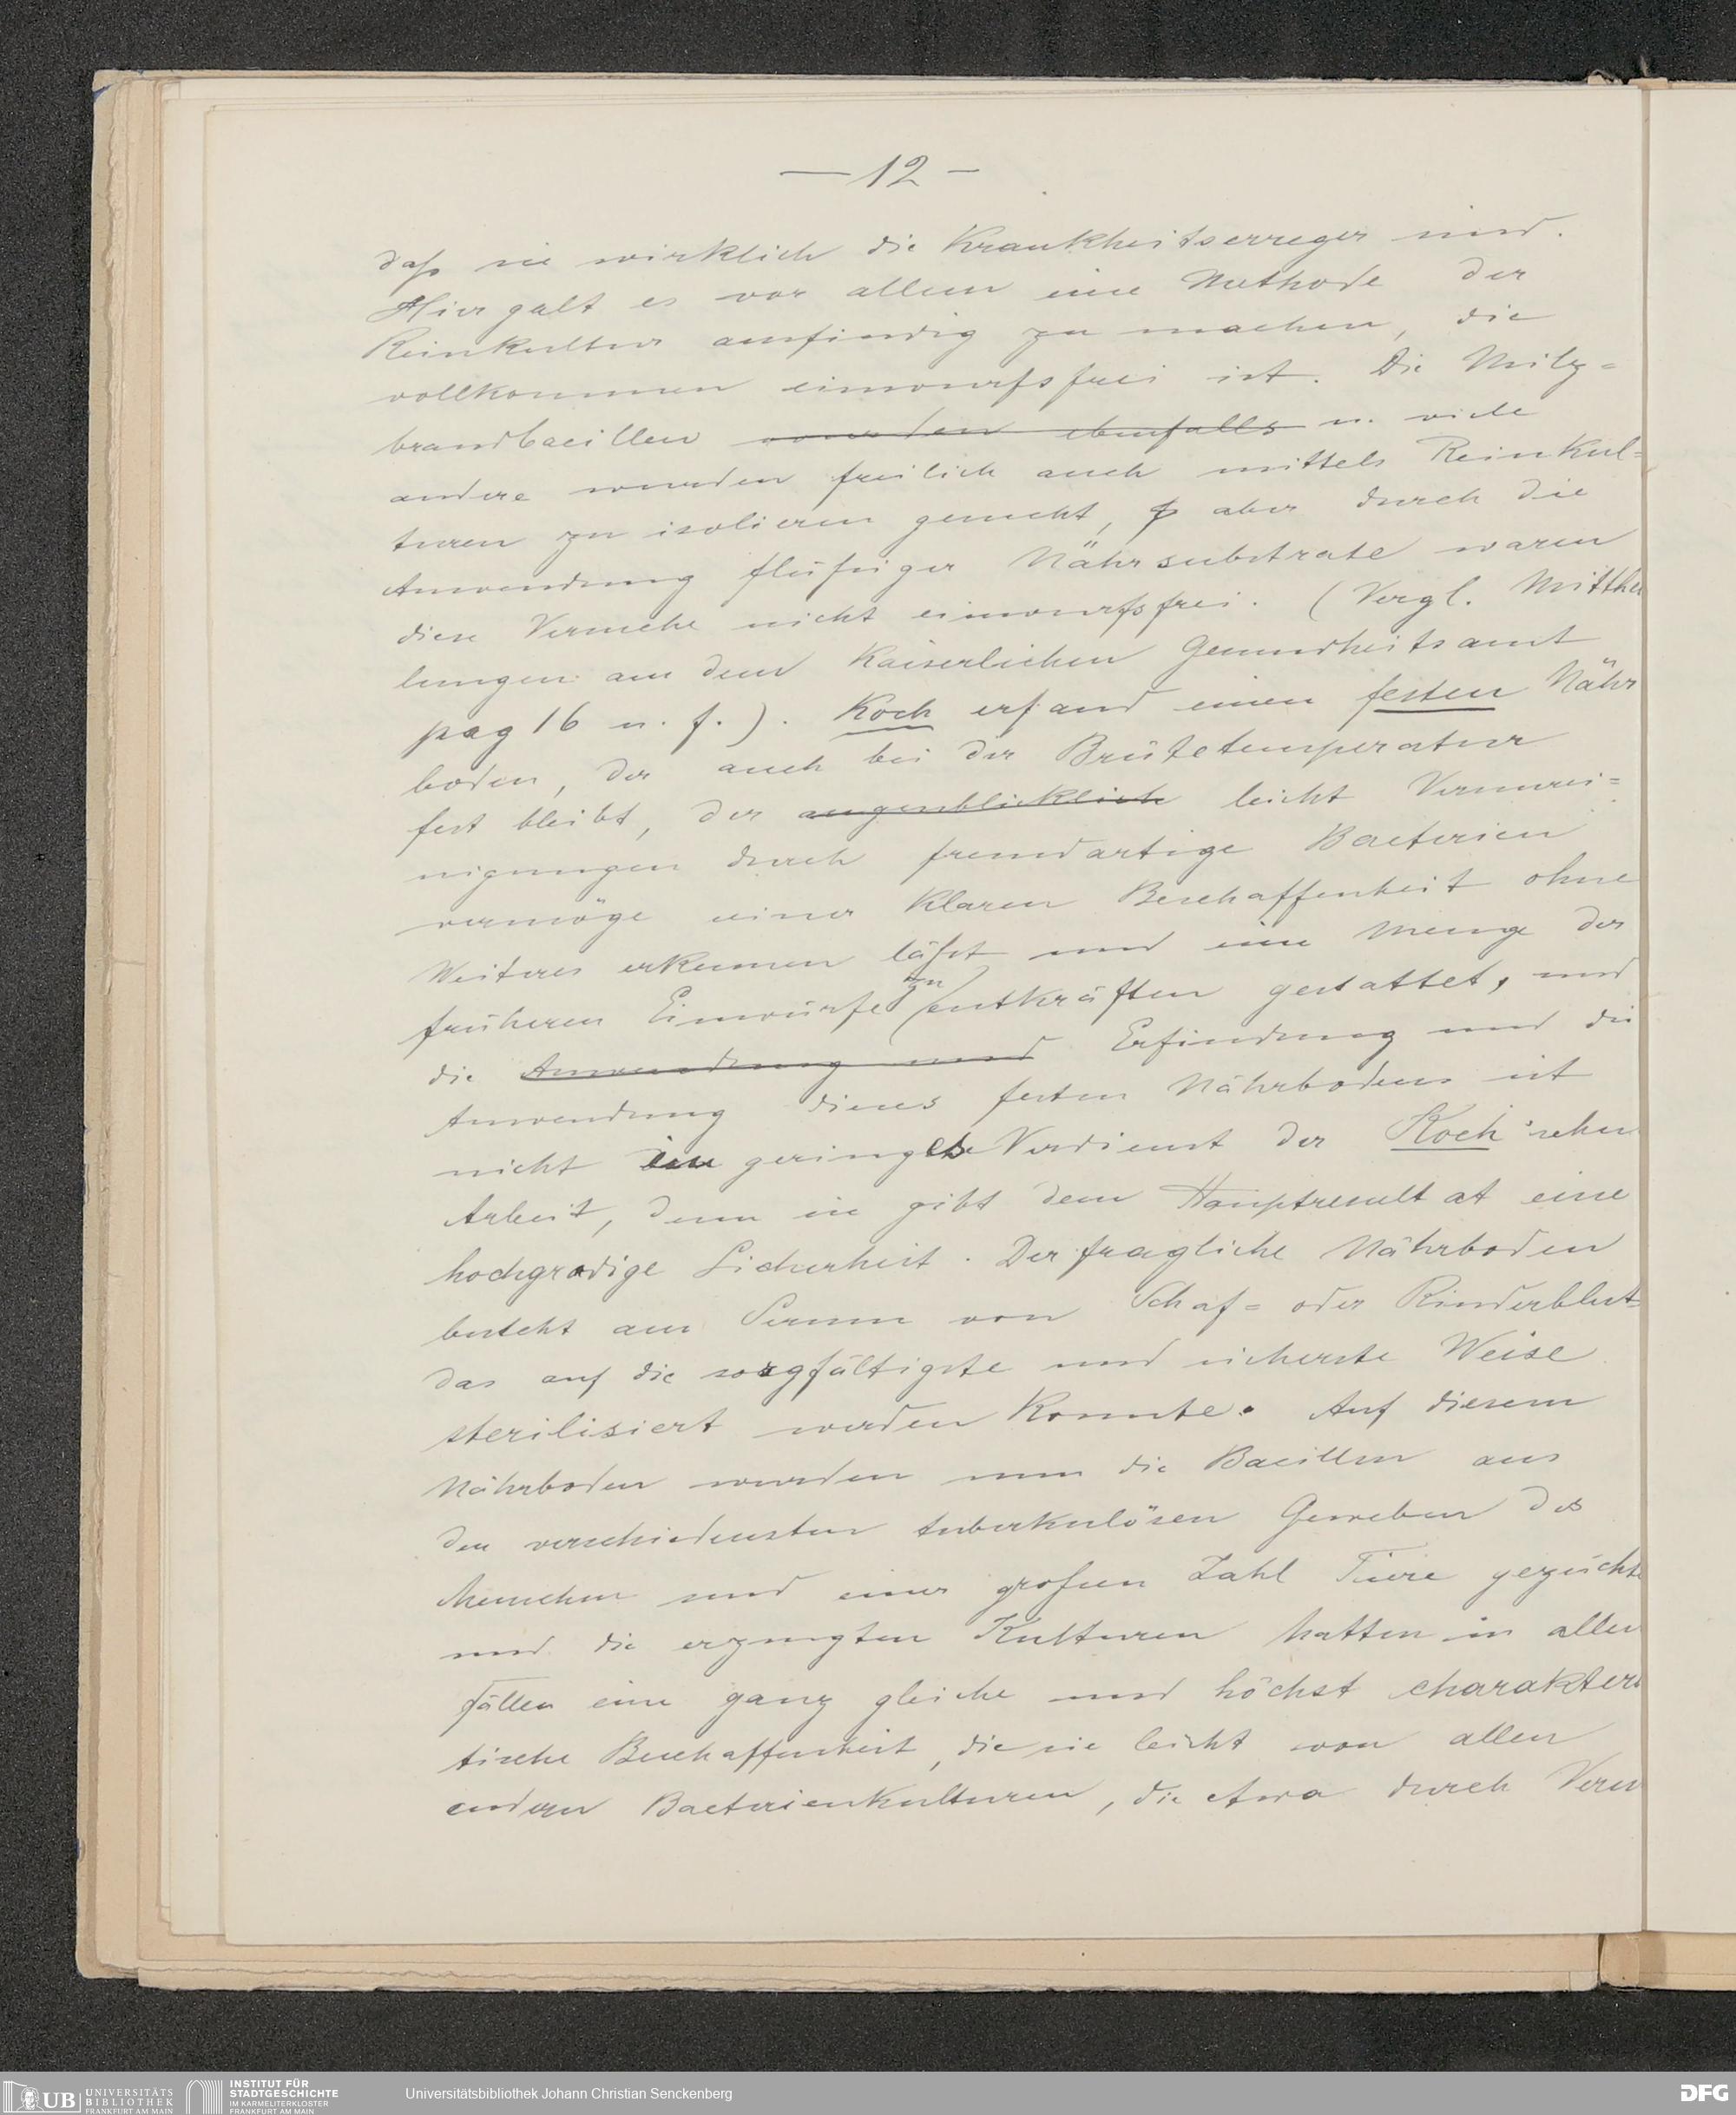 — 12 —
daß sie wirklich die Krankheitserreger sind.
Hier galt es vor allem eine Methode der
Reinkultur ausfindig zu machen, die
vollkommen einwurfsfrei ist. Die Milz=
brandbacillen wurden ebenfalls u. viele
andere wurden freilich auch mittels Reinkul=
turen zu isolieren gesucht, aber durch die
Anwendung flüßiger Nährsubstrate waren
diese Versuche nicht einwurfsfrei. (Vergl. Mitthei
lungen aus dem Kaiserlichen Gesundheitsamt
pag 16 u. f.). Koch erfand einen festen Nähr
boden, der auch bei der Brütetemperatur
fest bleibt, der augenblicklich leicht Verunrei=
nigungen durch fremdartige Bacterien
vermöge seiner klaren Beschaffenheit ohne
Weiteres erkennen läßt und eine Menge der
früheren Einwürfe zu entkräften gestattet, und
die Anwendung und Erfindung und die
Anwendung dieses festen Nährbodens ist
nicht ein geringes Verdienst der Koch'schen
Arbeit, denn sie gibt dem Hauptresultat eine
hochgradige Sicherheit. Der fragliche Nährboden
besteht aus Serum von Schaf= oder Rinderblut
das auf die sorgfältigste und sicherste Weise
sterilisiert werden konnte. Auf diesem
Nährboden wurden nun die Bacillen aus
den verschiedensten tuberkulösen Geweben des
Menschen und einer großen Zahl Tiere gezücht
und die erzeugten Kulturen hatten in allen
Fällen eine ganz gleiche und höchst charakteris
tische Beschaffenheit, die sie leicht von allen
andern Bacterienkulturen, die etwa durch Verun
UB UNIVERSITÄTS
BIBLIOTHEK
FRANKFURT AM MAIN
INSTITUT FÜR
STADTGESCHICHTE
IM KARMELITERKLOSTER
FRANKFURT AM MAIN
Universitätsbibliothek Johann Christian Senckenberg
DFG